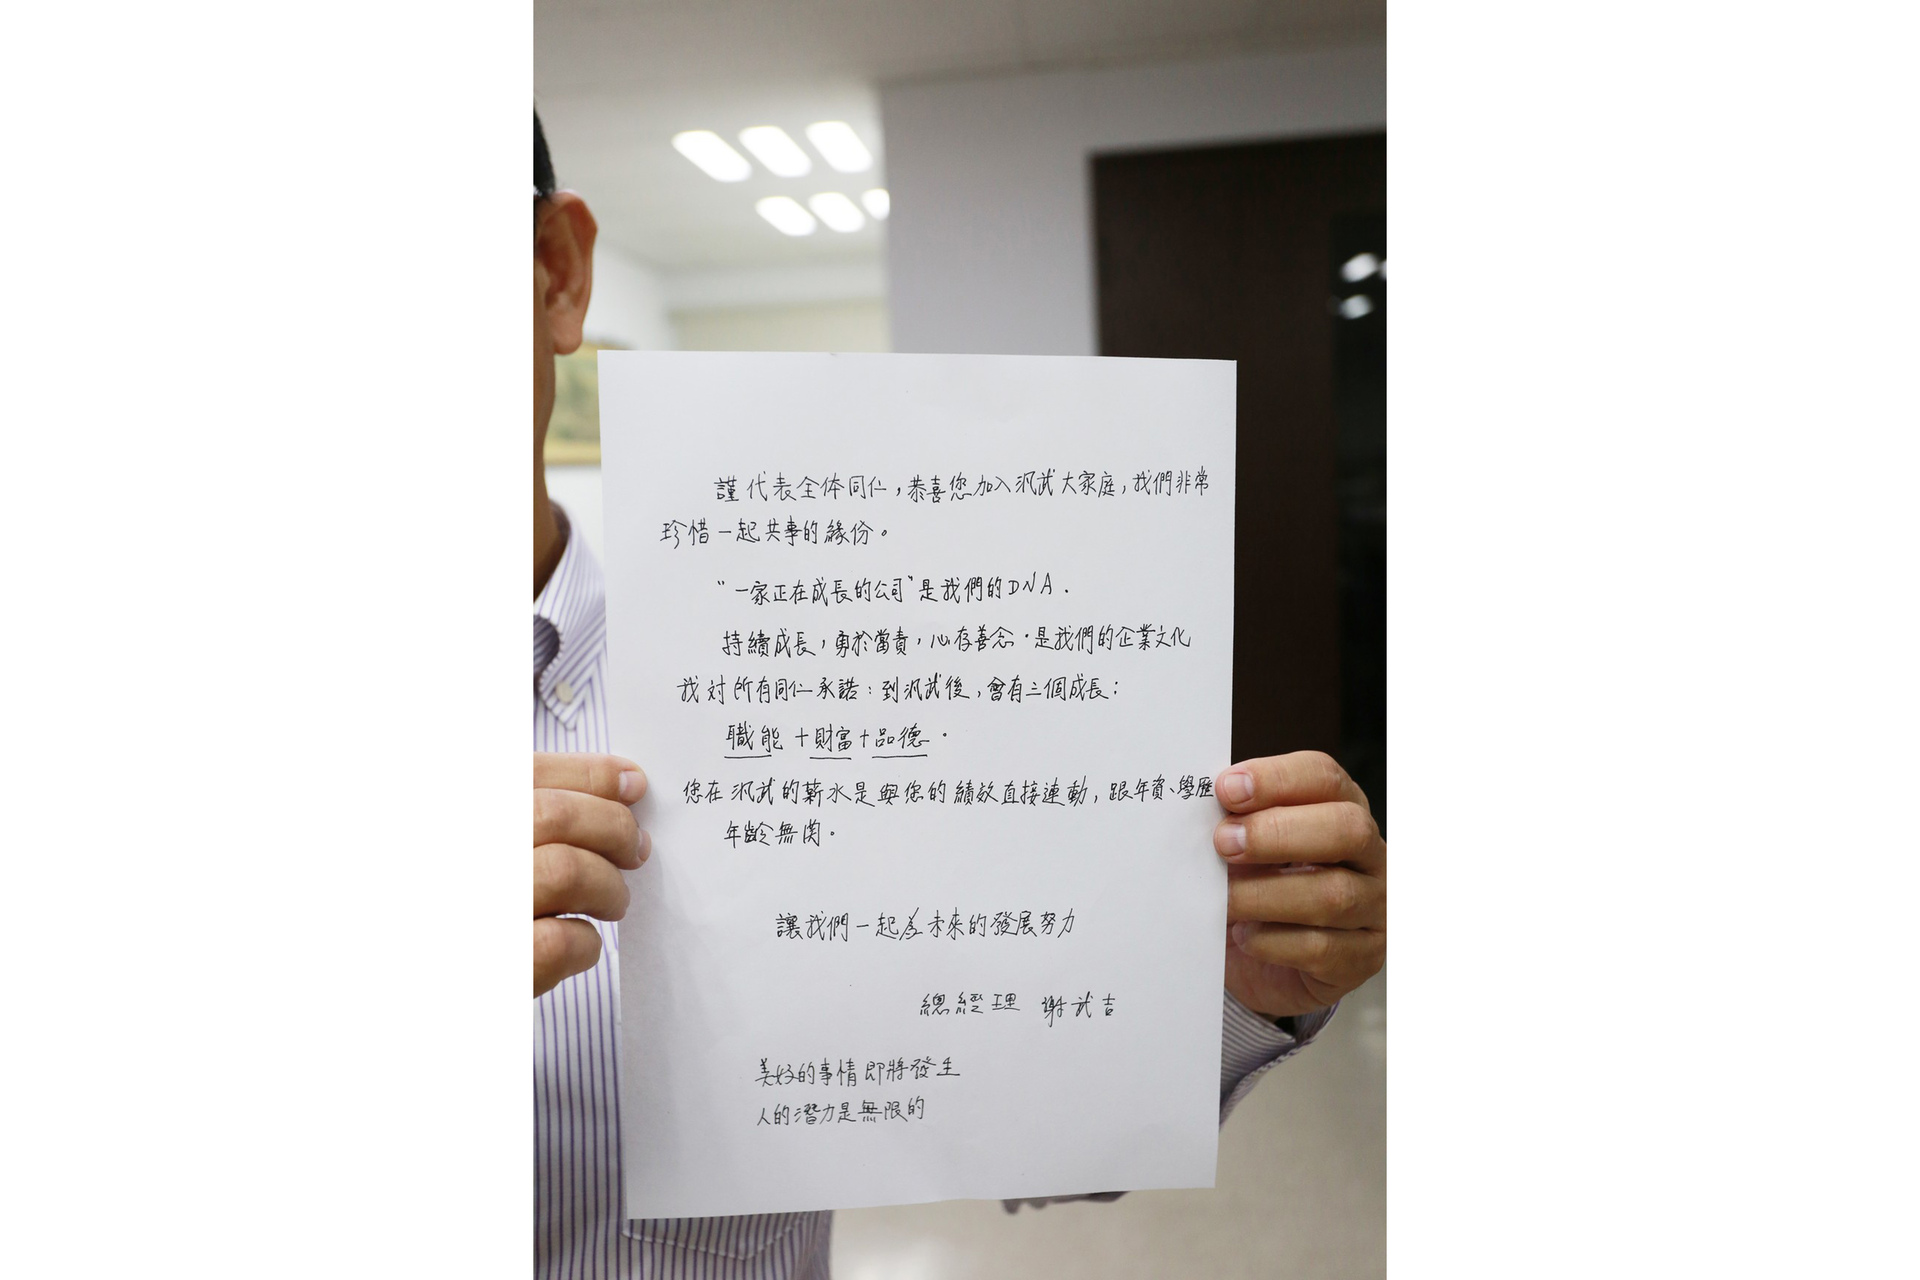 謹代表全体同仁，恭喜您加入汎武大家庭，我們非常
珍惜一起共事的緣份。
“一家正在成長的公司”是我們的DNA．
持續成長，勇於當責，心存善念．是我們的企業文化
我对所有同仁承諾：到汎武後，會有三個成長：
職能+財富+品德．
您在汎武的薪水是與您的績效直接連動，跟年資、學歷
年齡無関。
讓我們一起為未來的發展努力
總經理 謝武吉
美好的事情即將發生
人的潛力是無限的